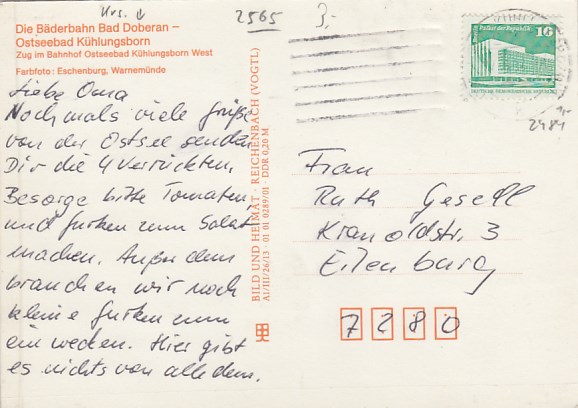 Urs. ↓
2565
3,-
Die Bäderbahn Bad Doberan –
Ostseebad Kühlungsborn
Zug im Bahnhof Ostseebad Kühlungsborn West
Farbfoto: Eschenburg, Warnemünde
Liebe Oma
Nochmals viele Grüße
von der Ostsee senden
Dir die 4 Verrückten.
Besorge bitte Tomaten
und Gurken zum Salat
machen. Außer dem
brauchen wir noch
kleine Gurken zum
ein wecken. Hier gibt
es nichts von alle dem.
BILD UND HEIMAT · REICHENBACH (VOGTL)
A1/III/26/13 · 01 01 0289/01 DDR 0,20 M
Palast der Republik
10
DEUTSCHE DEMOKRATISCHE REPUBLIK
2484
Frau
Ruth Gesell
Kranoldstr. 3
Eilenburg
7280